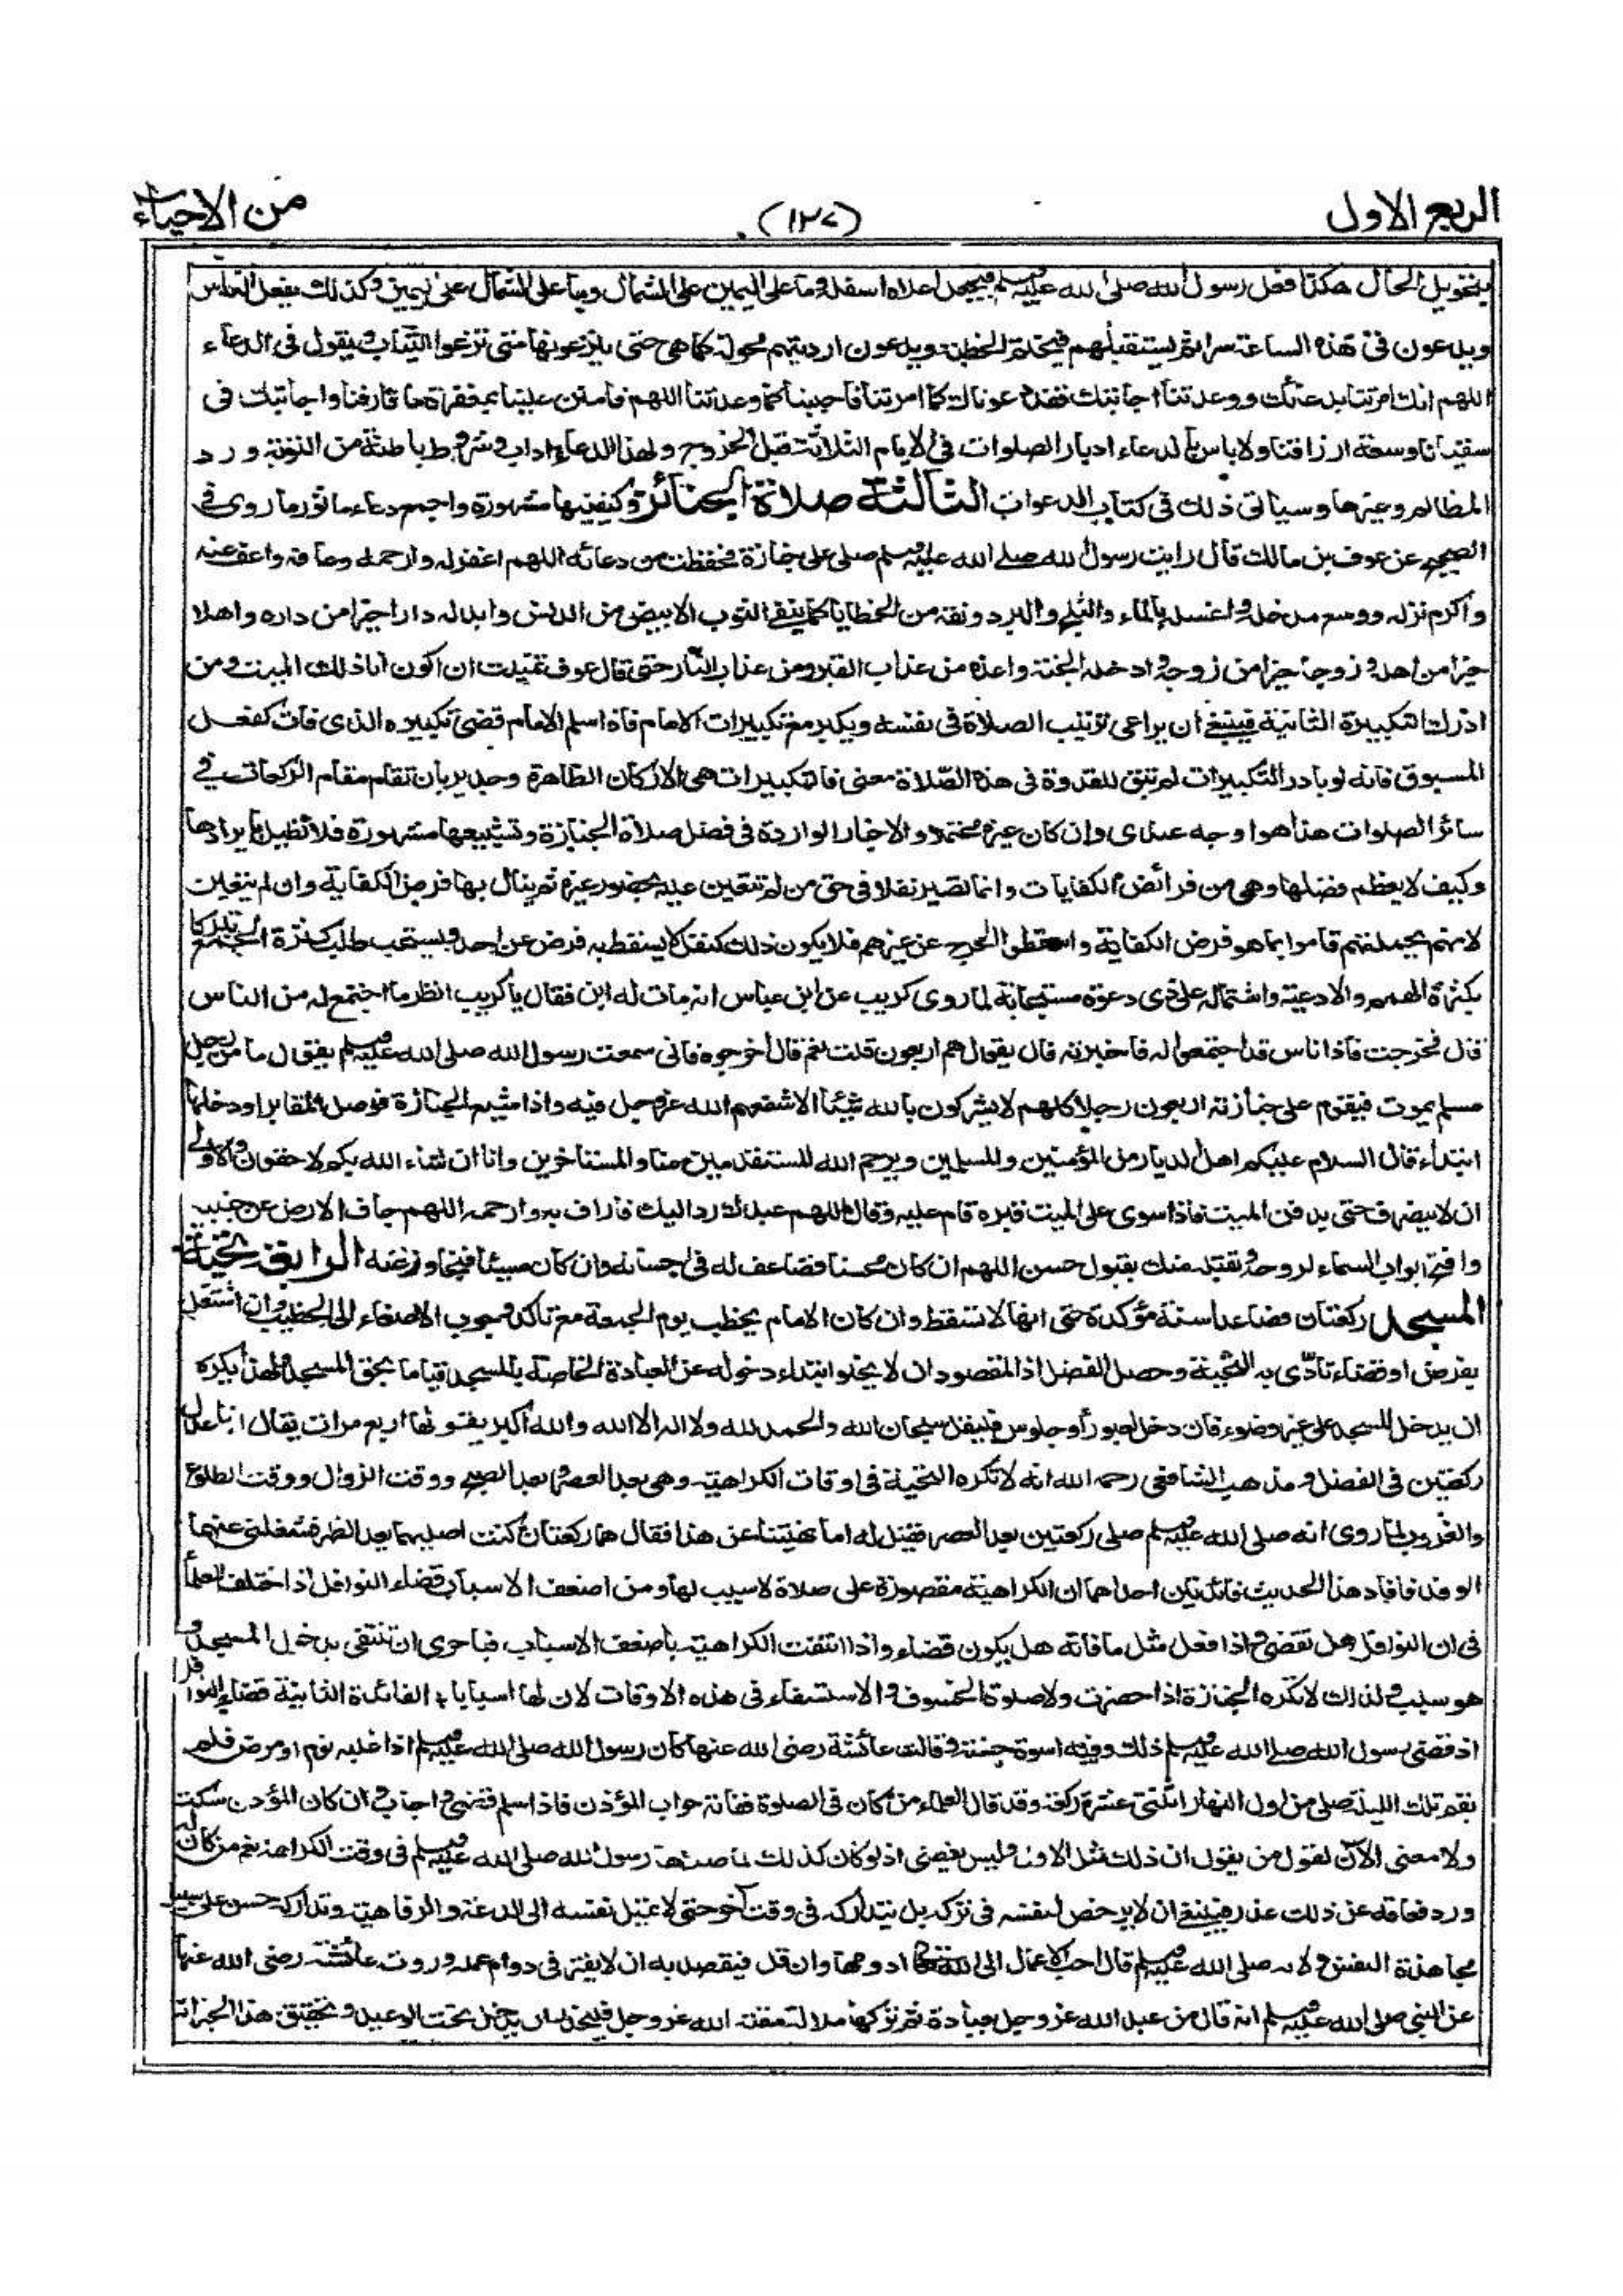 الربع الاول
(١٣٧)
من الاحياء
بتحويل الحال هكذا فعل رسول الله صلى الله عليه وسلم فيجعل اعلاه اسفله وما على اليمين على الشمال وما على الشمال على اليمين وكذلك يفعل الناس
ويدعون فى هذه الساعة سرا ثم يستقبلهم فيختم الخطبة ويدعون ارديتهم محولة كما هى حتى ينزعونها متى نزعوا الثياب ويقول فى الدعاء
اللهم انك امرتنا بدعائك ووعدتنا اجابتك فقد دعوناك كما امرتنا فاجبنا كما وعدتنا اللهم فامنن علينا بمغفرة ما قارفنا واجابتك فى
سقيانا وسعة ارزاقنا ولا باس بالدعاء ادبار الصلوات فى الايام الثلاثة قبل الخروج ولهذا الدعاء اداب وشروط باطنة من التوبة ورد
المظالم وغيرها وسياتى ذلك فى كتاب الدعوات الثالثة صلاة الجنائز وكيفيتها مشهورة واجمع دعاء ماثور ما روى فى
الصحيح عن عوف بن مالك قال رايت رسول الله صلى الله عليه وسلم صلى على جنازة فحفظت من دعائه اللهم اغفر له وارحمه وعافه واعف عنه
واكرم نزله ووسع مدخله واغسله بالماء والثلج والبرد ونقه من الخطايا كما ينقى الثوب الابيض من الدنس وابدله دارا خيرا من داره واهلا
خيرا من اهله وزوجا خيرا من زوجه وادخله الجنة واعذه من عذاب القبر ومن عذاب النار حتى قال عوف تمنيت ان اكون انا ذلك الميت ومن
ادرك التكبيرة الثانية فينبغى ان يراعى ترتيب الصلاة فى نفسه ويكبر مع تكبيرات الامام فاذا سلم الامام قضى تكبيره الذى فات كفعل
المسبوق فانه لو بادر التكبيرات لم تبق للقدوة فى هذه الصلاة معنى فالتكبيرات هى الاركان الظاهرة وجدير بان تقام مقام الركعات فى
سائر الصلوات هذا هو الاوجه عندى وان كان غيره محتملا والاخبار الواردة فى فضل صلاة الجنازة وتشييعها مشهورة فلا نطيل بايرادها
وكيف لا يعظم فضلها وهى من فرائض الكفايات وانما تصير نفلا فى حق من لم تتعين عليه بحضور غيره ثم ينال بها فرض الكفاية وان لم يتعين
لانهم بجملتهم قاموا بما هو فرض الكفاية واسقطوا الحرج عن غيرهم فلا يكون ذلك كنفل لا يسقط به فرض عن احد ويستحب طلب كثرة الجمع تبركا
بكثرة الهمم والادعية واشتماله على ذى دعوة مستجابة لما روى كريب عن ابن عباس انه مات له ابن فقال يا كريب انظر ما اجتمع له من الناس
قال فخرجت فاذا ناس قد اجتمعوا له فاخبرته قال يقول هم اربعون قلت نعم قال اخرجوه فانى سمعت رسول الله صلى الله عليه وسلم يقول ما من رجل
مسلم يموت فيقوم على جنازته اربعون رجلا كلهم لا يشركون بالله شيئا الا شفعهم الله عز وجل فيه واذا شيع الجنازة فوصل المقابر او دخلها
ابتداء قال السلام عليكم اهل الديار من المؤمنين والمسلمين ويرحم الله المستقدمين منا والمستاخرين وانا ان شاء الله بكم لاحقون والاولى
ان لا ينصرف حتى يدفن الميت فاذا سوى على الميت قبره قام عليه وقال اللهم عبدك رد اليك فاراف به وارحمه اللهم جاف الارض عن جنبيه
وافتح ابواب السماء لروحه وتقبله منك بقبول حسن اللهم ان كان محسنا فضاعف له فى احسانه وان كان مسيئا فتجاوز عنه الرابعة تحية
المسجد ركعتان فصاعدا سنة مؤكدة حتى انها لا تسقط وان كان الامام يخطب يوم الجمعة مع تاكد وجوب الاصغاء الى الخطيب وان اشتغل
بفرض او قضاء تادى به التحية وحصل الفضل اذ المقصود ان لا يخلو ابتداء دخوله عن العبادة الخاصة بالمسجد قياما بحق المسجد ولهذا يكره
ان يدخل المسجد على غير وضوء فان دخل لعبور او جلوس فليقل سبحان الله والحمد لله ولا اله الا الله والله اكبر يقولها اربع مرات يقال انها عدل
ركعتين فى الفضل ومذهب الشافعى رحمه الله انه لا تكره التحية فى اوقات الكراهية وهى بعد العصر وبعد الصبح ووقت الزوال ووقت الطلوع
والغروب لما روى انه صلى الله عليه وسلم صلى ركعتين بعد العصر فقيل له اما نهيتنا عن هذا فقال هما ركعتان كنت اصليهما بعد الظهر فشغلنى عنهما
الوفد فافاد هذا الحديث فائدتين احداهما ان الكراهية مقصورة على صلاة لا سبب لها ومن اضعف الاسباب قضاء النوافل اذ اختلف العلماء
فى ان النوافل هل تقضى واذا فعل مثل ما فاته هل يكون قضاء واذا انتفت الكراهية باضعف الاسباب فباحرى ان تنتفى بدخول المسجد و
هو سبب قوى ولذلك لا تكره الجنازة اذا حضرت ولا صلوة الخسوف والاستسقاء فى هذه الاوقات لان لها اسبابا الفائدة الثانية قضاء النوافل
اذ قضى رسول الله صلى الله عليه وسلم ذلك وفيه اسوة حسنة وقالت عائشة رضى الله عنها كان رسول الله صلى الله عليه وسلم اذا غلبه نوم او مرض فلم
يقم تلك الليلة صلى من اول النهار اثنتى عشرة ركعة وقد قال العلماء من كان فى الصلوة ففاته جواب المؤذن فاذا سلم قضى واجاب وان كان المؤذن سكت
ولا معنى الآن لقول من يقول ان ذلك مثل الاول وليس يقضى اذ لو كان كذلك لما صلاها رسول الله صلى الله عليه وسلم فى وقت الكراهة نعم من كان له
ورد فعاقه عن ذلك عذر فينبغى ان لا يرخص لنفسه فى تركه بل يتداركه فى وقت آخر حتى لا تميل نفسه الى الدعة والرفاهية وتداركه حسن على سبيل
مجاهدة النفس ولانه صلى الله عليه وسلم قال احب الاعمال الى الله ادومها وان قل فيقصد به ان لا يفتر فى دوام عمله وروت عائشة رضى الله عنها
عن النبى صلى الله عليه وسلم انه قال من عبد الله عز وجل عبادة ثم تركها ملالة مقته الله عز وجل فليحذر ان يدخل تحت الوعيد وتحقيق هذا الخبر انه